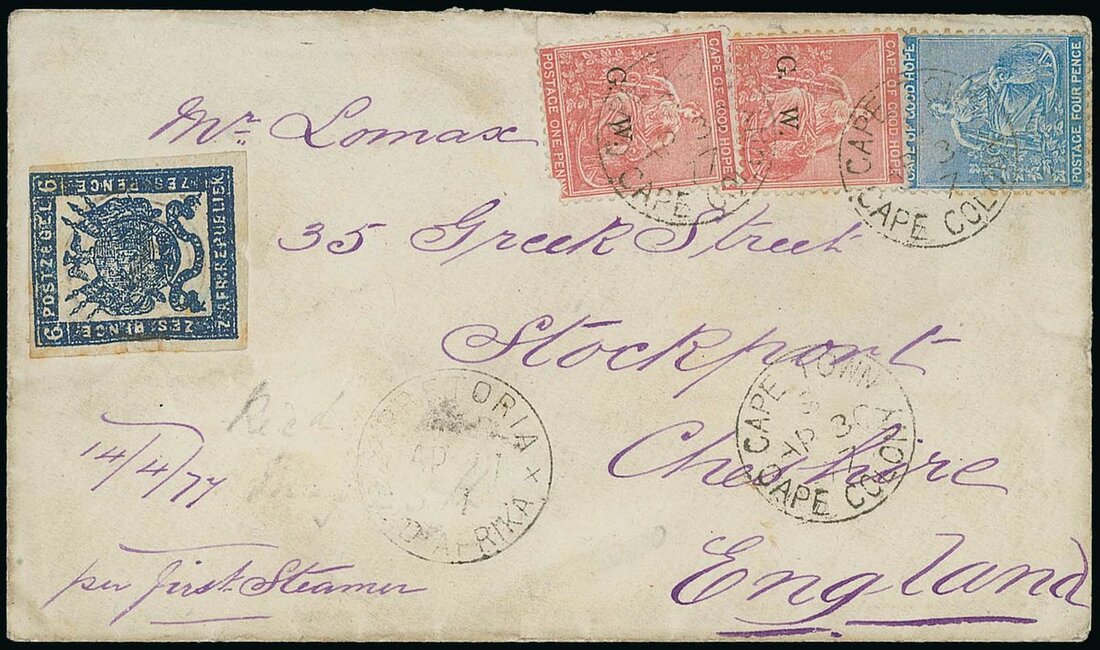 CAPE OF GOOD HOPE
POSTAGE ONE PENN
G. W.
CAPE OF GOOD HOPE
G. W.
CAPE OF GOOD HOPE
POSTAGE FOUR PENCE
CAPE COLO
CAPE
CAPE COLON
Mr. Lomax
35 Greek Street
Stockport
Cheshire
England
6 ZES PENCE 6
POSTZEGEL
Z. AFR. REPUBLIEK
ZES PENCE
6
PRETORIA
AP
AFRIKA
CAPE TOWN
AP 30
CAPE COLONY
14/4/77
per first Steamer